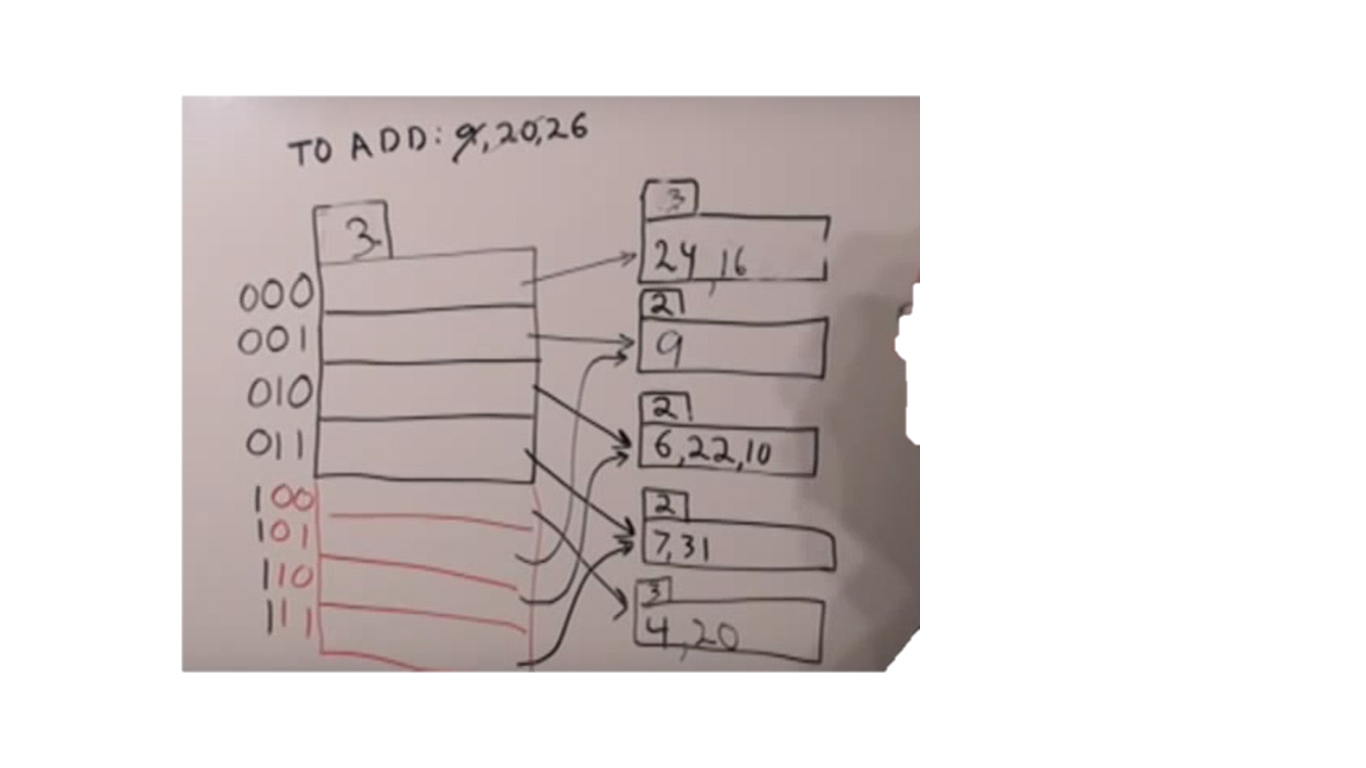 TO ADD: 9,20,26
3
000
001
010
011
100
101
110
111
3
24,16
2
9
2
6,22,10
2
7,31
3
4,20